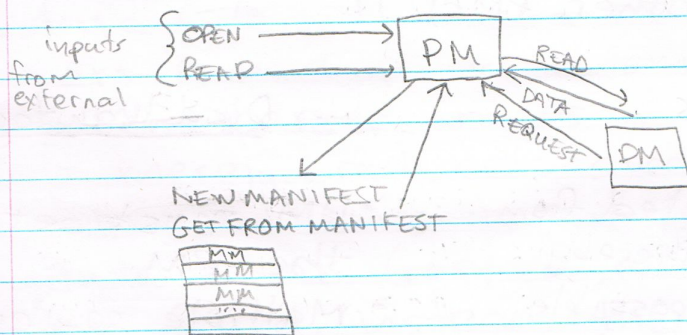 inputs
from
external
OPEN
READ
PM
READ
DATA
REQUEST
DM
NEW MANIFEST
GET FROM MANIFEST
MM
MM
MM
...